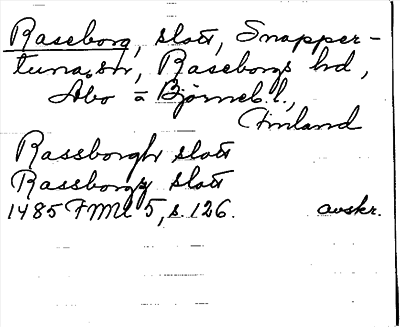 Raseborg, slott, Snapper-
tuna sn, Raseborgs hd,
Åbo = Björneb. l.,
Finland
Rassborgh slott
Rassborgs slott
1485 FMU 5, s. 126. avskr.